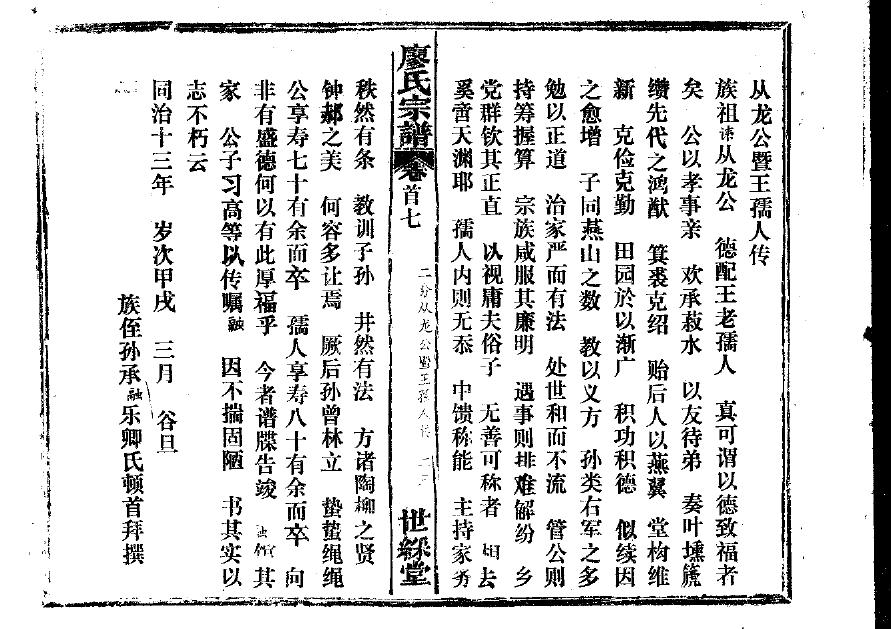 从龙公暨王孺人传
族祖讳从龙公 德配王老孺人 真可谓以德致福者
矣 公以孝事亲 欢承菽水 以友待弟 奏叶埙篪
缵先代之鸿猷 箕裘克绍 贻后人以燕翼 堂构维
新 克俭克勤 田园於以渐广 积功积德 似续因
之愈增 子同燕山之数 教以义方 孙类右军之多
勉以正道 治家严而有法 处世和而不流 管公则
持筹握算 宗族咸服其廉明 遇事则排难解纷 乡
党群钦其正直 以视庸夫俗子 无善可称者 相去
奚啻天渊耶 孺人内则无忝 中馈称能 主持家务
廖氏宗譜 卷首七 二分从龙公暨王孺人传 二三 世綵堂
秩然有条 教训子孙 井然有法 方诸陶柳之贤
钟郝之美 何容多让焉 厥后孙曾林立 蛰蛰绳绳
公享寿七十有余而卒 孺人享寿八十有余而卒 向
非有盛德何以有此厚福乎 今者谱牒告竣 馆其
家 公子习高等以传嘱融 因不揣固陋 书其实以
志不朽云
同治十三年 岁次甲戌 三月 谷旦
族侄孙承融乐卿氏顿首拜撰